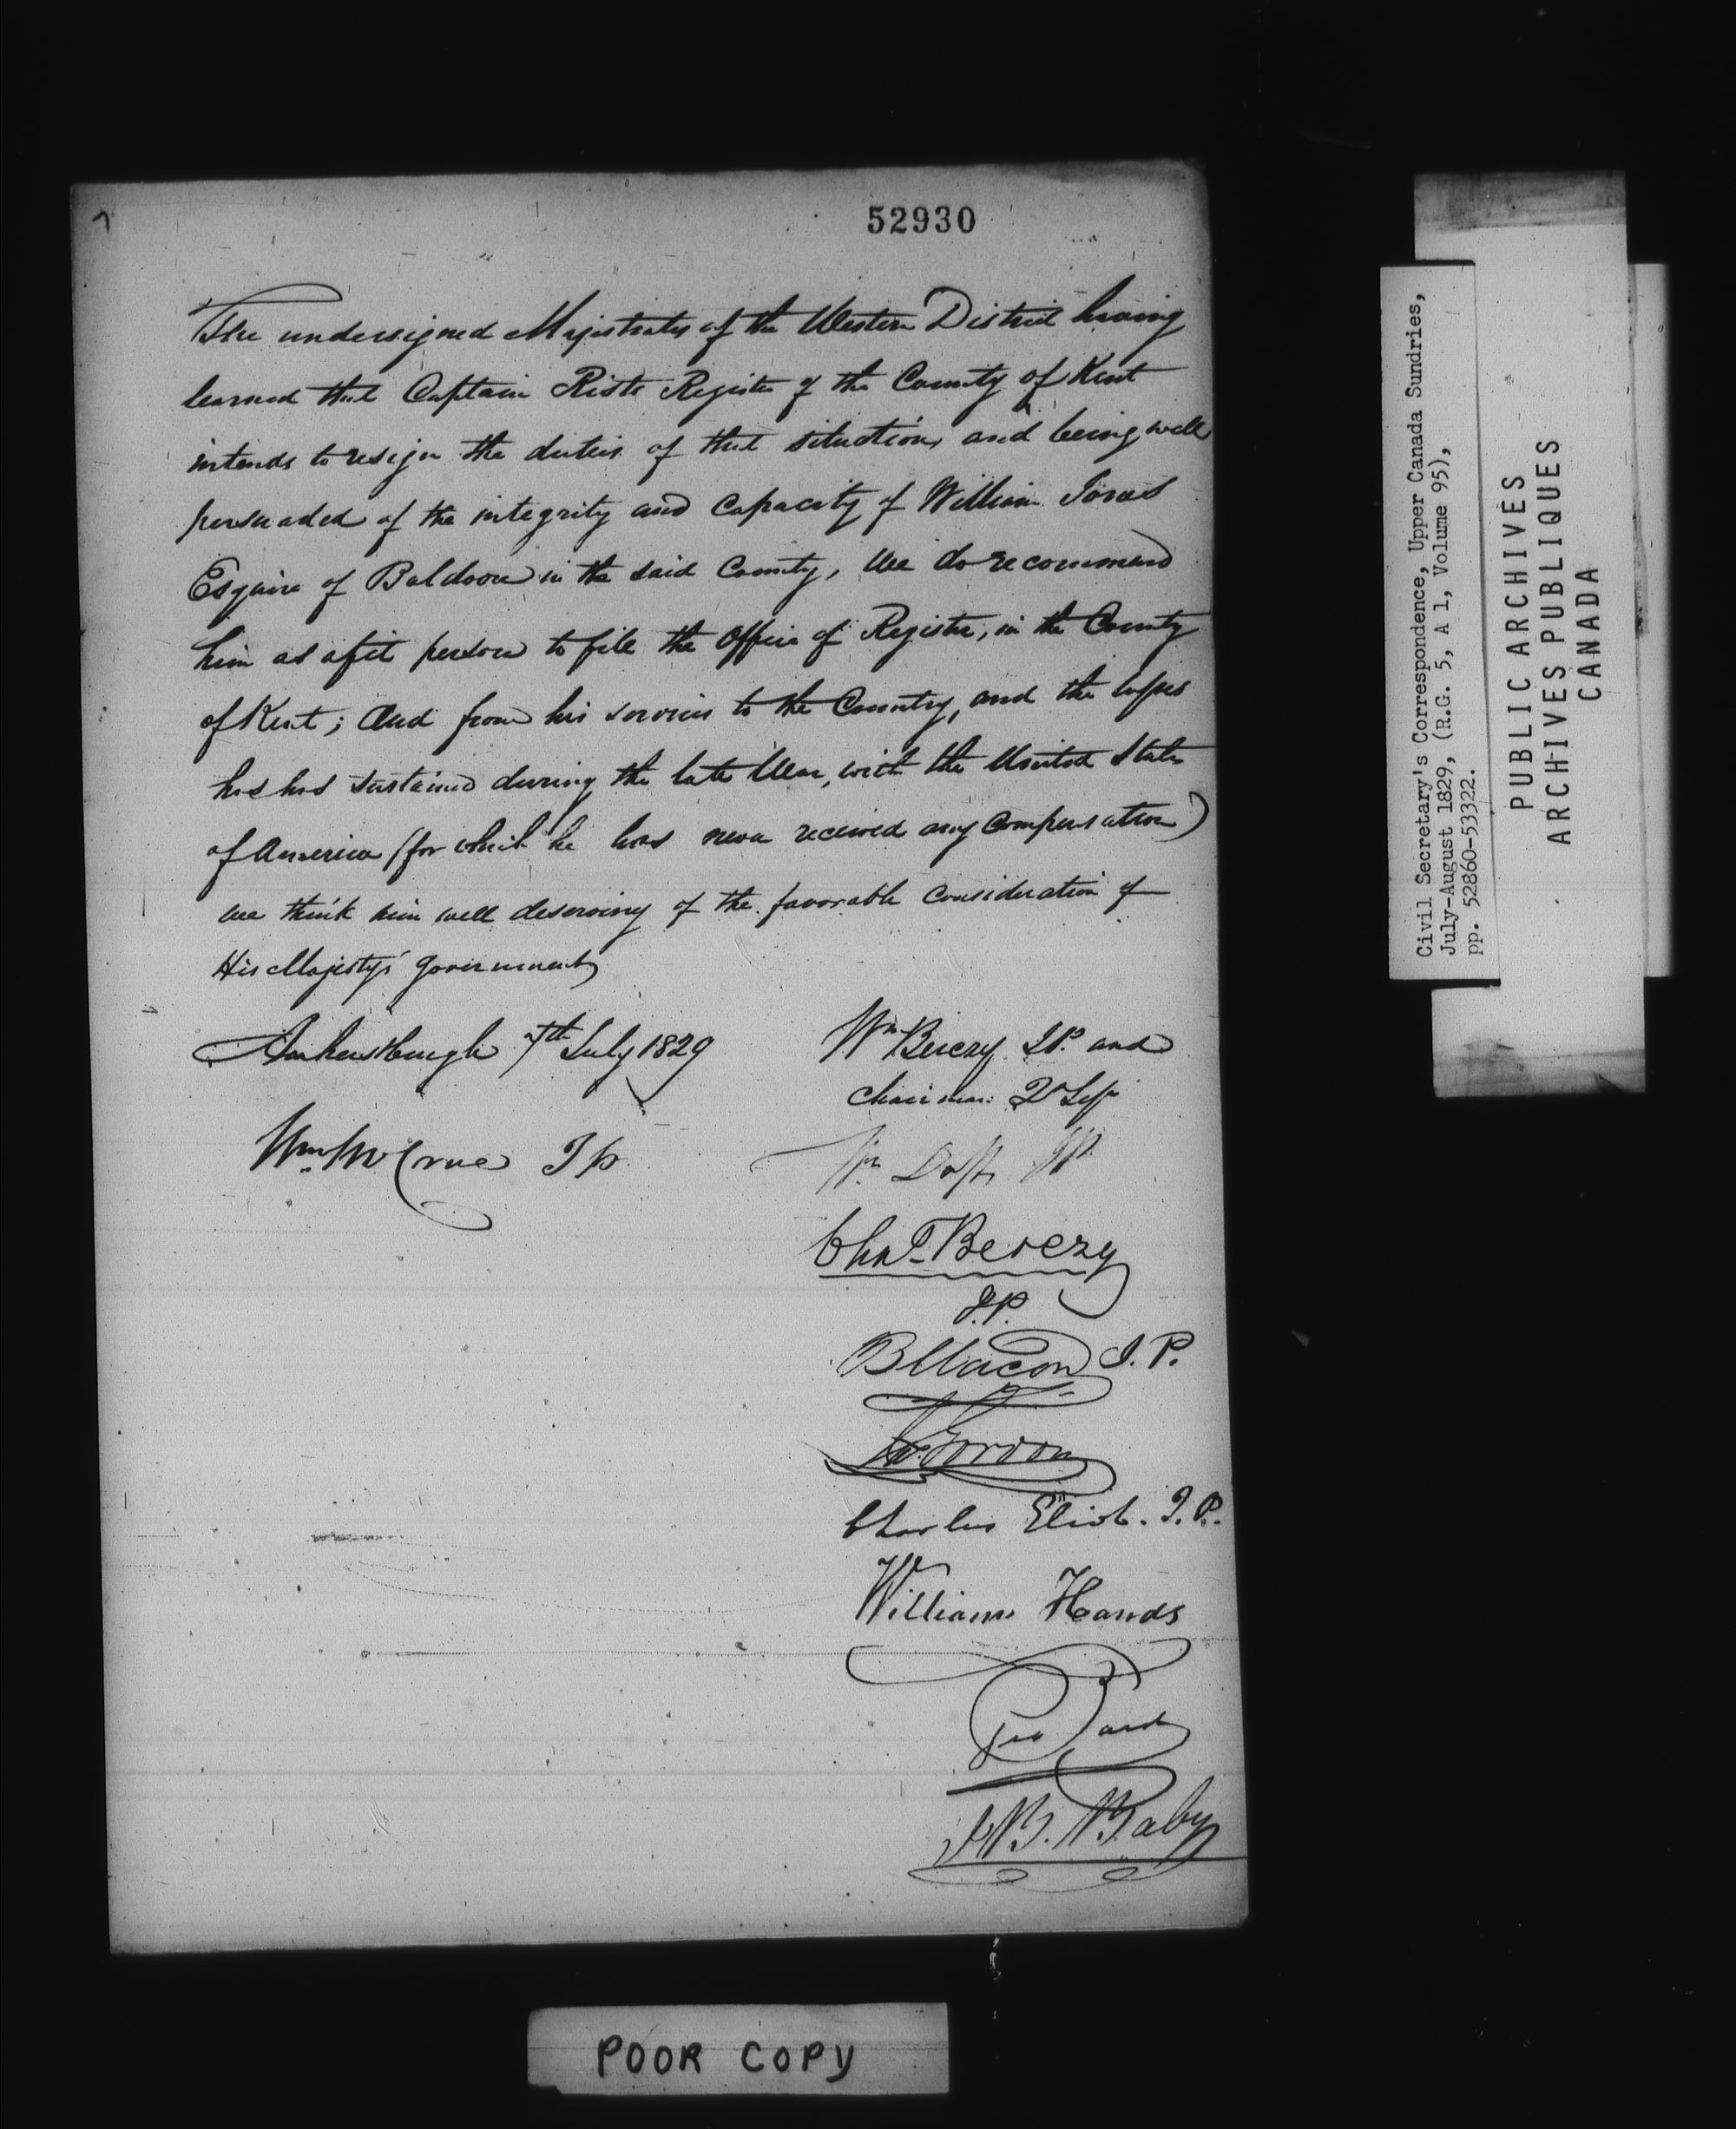 52930
The undersigned Magistrates of the Western District having
learned that Captain Rist Register of the County of Kent
intends to resign the duties of that situation, and being well
persuaded of the integrity and capacity of William Jones
Esquire of Baldoon in the said County, We do recommend
him as a fit person to fill the Office of Register, in the County
of Kent; And from his services to the Country, and the losses
he has sustained during the late War, with the United States
of America (for which he has never received any compensation)
we think him well deserving of the favorable consideration of
His Majesty's Government
Amherstburgh 7th July 1829
Wm Berczy J.P. and
Chairman
Wm McCrae J p
Wm J.P.
Chas Berczy
J.P.
B Macon J.P.
Gordon
Charles Eliot. J.P.
William Hands
J.B. Baby
Civil Secretary's Correspondence, Upper Canada Sundries,
July-August 1829, (R.G. 5, A 1, Volume 95),
pp. 52860-53322.
PUBLIC ARCHIVES
ARCHIVES PUBLIQUES
CANADA
POOR COPY